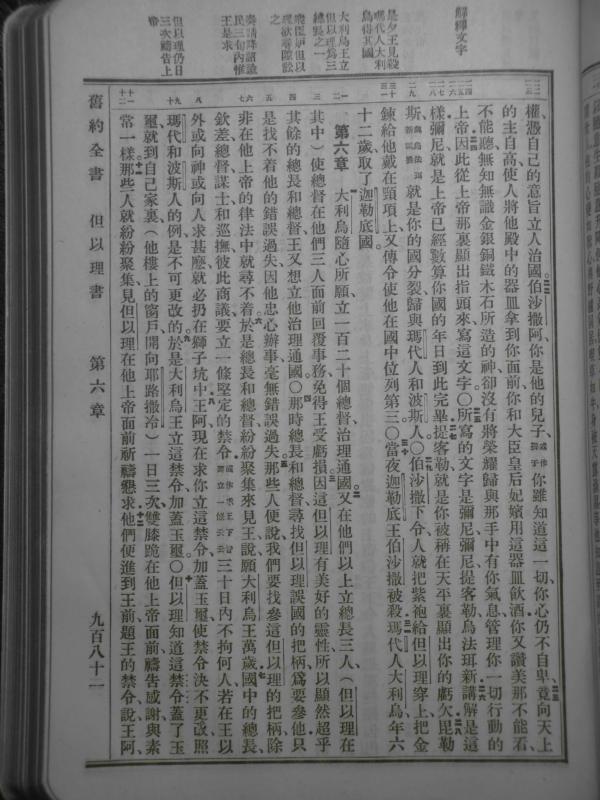 解釋文字
是夕王見殺
瑪代人大利
烏得其國
大利烏王立
但以理爲三
總長之一
衆臣妒但以
理欲尋隙訟
之
奏請降詔諭
民三旬內惟
王是求
但以理仍日
三次禱告上
帝
權憑自己的意旨立人治國伯沙撒阿你是他的兒子或作孫子你雖知道這一切你心仍不自卑竟向天上
的主自高使人將他殿中的器皿拿到你面前你和大臣皇后妃嬪用這器皿飲酒你又讚美那不能看
不能聽無知無識金銀銅鐵木石所造的神卻沒有將榮耀歸與那手中有你氣息管理你一切行動的
上帝因此從上帝那裏顯出指頭來寫這文字○所寫的文字是彌尼彌尼提客勒烏法珥新講解是這
樣彌尼就是上帝已經數算你國的年日到此完畢提客勒就是你被稱在天平裏顯出你的虧欠毘勒
斯就是你的國分裂歸與瑪代人和波斯人○伯沙撒下令人就把紫袍給但以理穿上把金
鍊給他戴在頸項上又傳令使他在國中位列第三○當夜迦勒底王伯沙撒被殺瑪代人大利烏年六
十二歲取了迦勒底國
第六章 大利烏隨心所願立一百二十個總督治理通國又在他們以上立總長三人（但以理在
其中）使總督在他們三人面前回覆事務免得王受虧損因這但以理有美好的靈性所以顯然超乎
其餘的總長和總督王又想立他治理通國○那時總長和總督尋找但以理誤國的把柄爲要參他只
是找不着他的錯誤過失因他忠心辦事毫無錯誤過失那些人便說我們要找參這但以理的把柄除
非在他上帝的律法中就尋不着於是總長和總督紛紛聚集來見王說願大利烏王萬歲國中的總長
欽差總督謀士和巡撫彼此商議要立一條堅定的禁令三十日內不拘何人若在王以
外或向神或向人求甚麽就必扔在獅子坑中王阿現在求你立這禁令加蓋玉璽使禁令決不更改照
瑪代和波斯人的例是不可更改的於是大利烏王立這禁令加蓋玉璽○但以理知道這禁令蓋了玉
璽就到自己家裏（他樓上的窗戶開向耶路撒冷）一日三次雙膝跪在他上帝面前禱告感謝與素
常一樣那些人就紛紛聚集見但以理在他上帝面前祈禱懇求他們便進到王前題王的禁令說王阿
舊約全書 但以理書 第六章 九百八十一